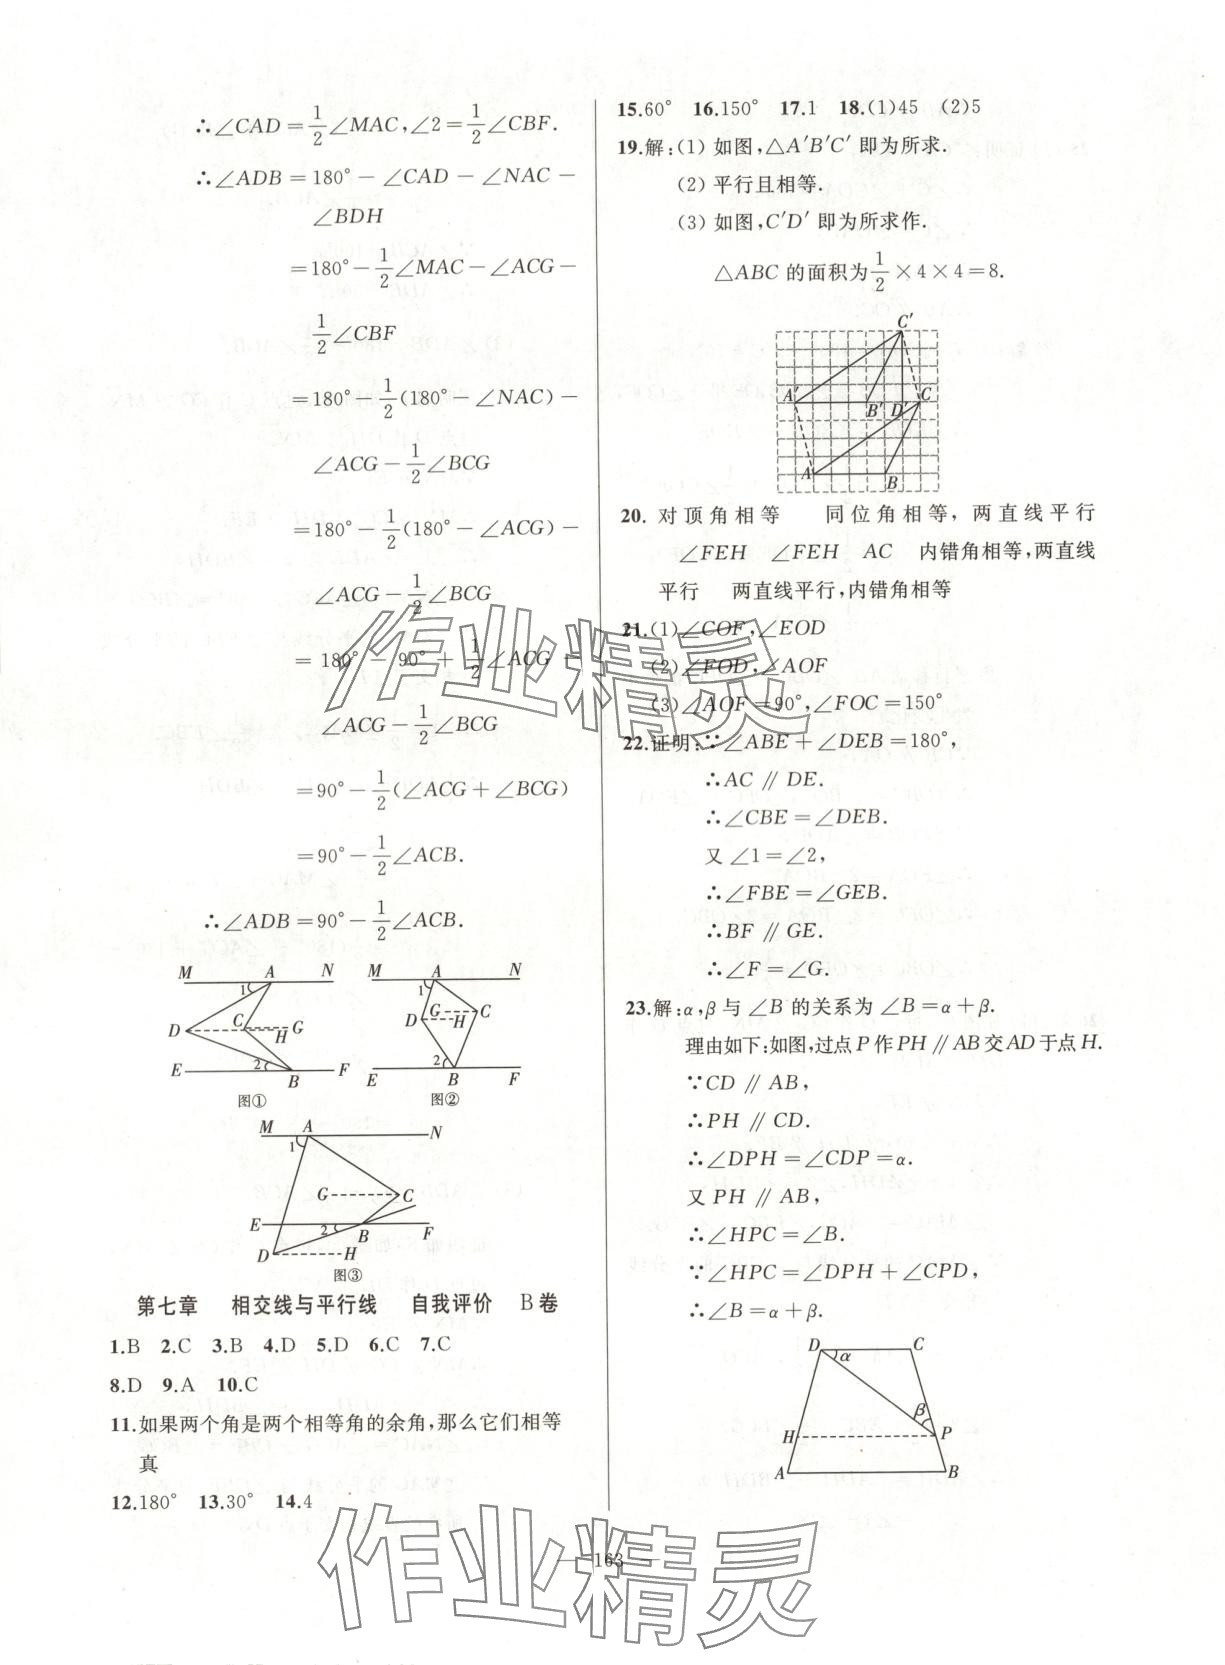 ∴∠CAD=1/2∠MAC,∠2=1/2∠CBF.
∴∠ADB=180°-∠CAD-∠NAC-
∠BDH
=180°-1/2∠MAC-∠ACG-
1/2∠CBF
=180°-1/2(180°-∠NAC)-
∠ACG-1/2∠BCG
=180°-1/2(180°-∠ACG)-
∠ACG-1/2∠BCG
=180°-90°+1/2∠ACG-
∠ACG-1/2∠BCG
=90°-1/2(∠ACG+∠BCG)
=90°-1/2∠ACB.
∴∠ADB=90°-1/2∠ACB.
M A N
1
D C G
H
2
E B F
图①
M A N
1
G C
D H
2
E B F
图②
M A N
1
G C
E 2 B F
D H
图③
第七章 相交线与平行线 自我评价 B卷
1.B 2.C 3.B 4.D 5.D 6.C 7.C
8.D 9.A 10.C
11.如果两个角是两个相等角的余角,那么它们相等
真
12.180° 13.30° 14.4
15.60° 16.150° 17.1 18.(1)45 (2)5
19.解:(1)如图,△A′B′C′即为所求.
(2)平行且相等.
(3)如图,C′D′即为所求作.
△ABC的面积为1/2×4×4=8.
C′
A′ B′ D′ C
A B
20. 对顶角相等 同位角相等,两直线平行
∠FEH ∠FEH AC 内错角相等,两直线
平行 两直线平行,内错角相等
21.(1)∠COF,∠EOD
(2)∠FOD,∠AOF
(3)∠AOF=90°,∠FOC=150°
22.证明:∵∠ABE+∠DEB=180°,
∴AC∥DE.
∴∠CBE=∠DEB.
又∠1=∠2,
∴∠FBE=∠GEB.
∴BF∥GE.
∴∠F=∠G.
23.解:α,β与∠B的关系为∠B=α+β.
理由如下:如图,过点P作PH∥AB交AD于点H.
∵CD∥AB,
∴PH∥CD.
∴∠DPH=∠CDP=α.
又PH∥AB,
∴∠HPC=∠B.
∵∠HPC=∠DPH+∠CPD,
∴∠B=α+β.
D C
α
β
H P
A B
— 163 —
作业精灵
作业精灵